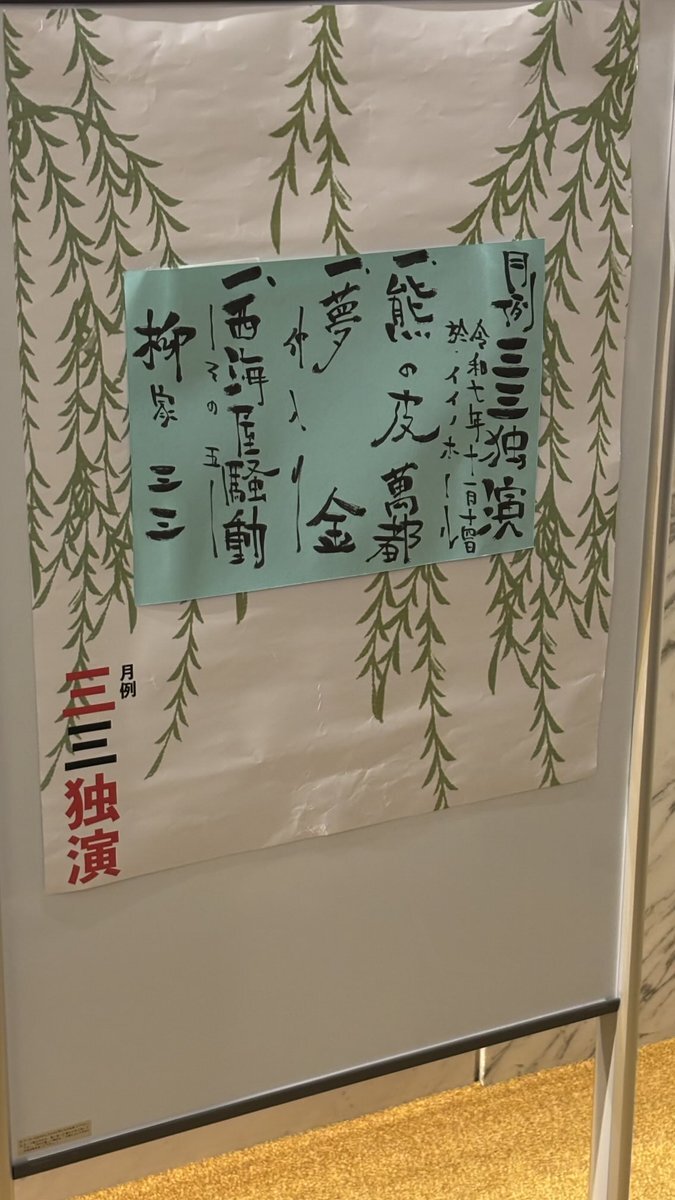 月例 三三独演
令和七年十一月十四日
於・イイノホール
一、熊の皮 萬都
一、夢金
―仲入り―
一、西海屋騒動
―その五―
柳家 三三
月例
三三独演